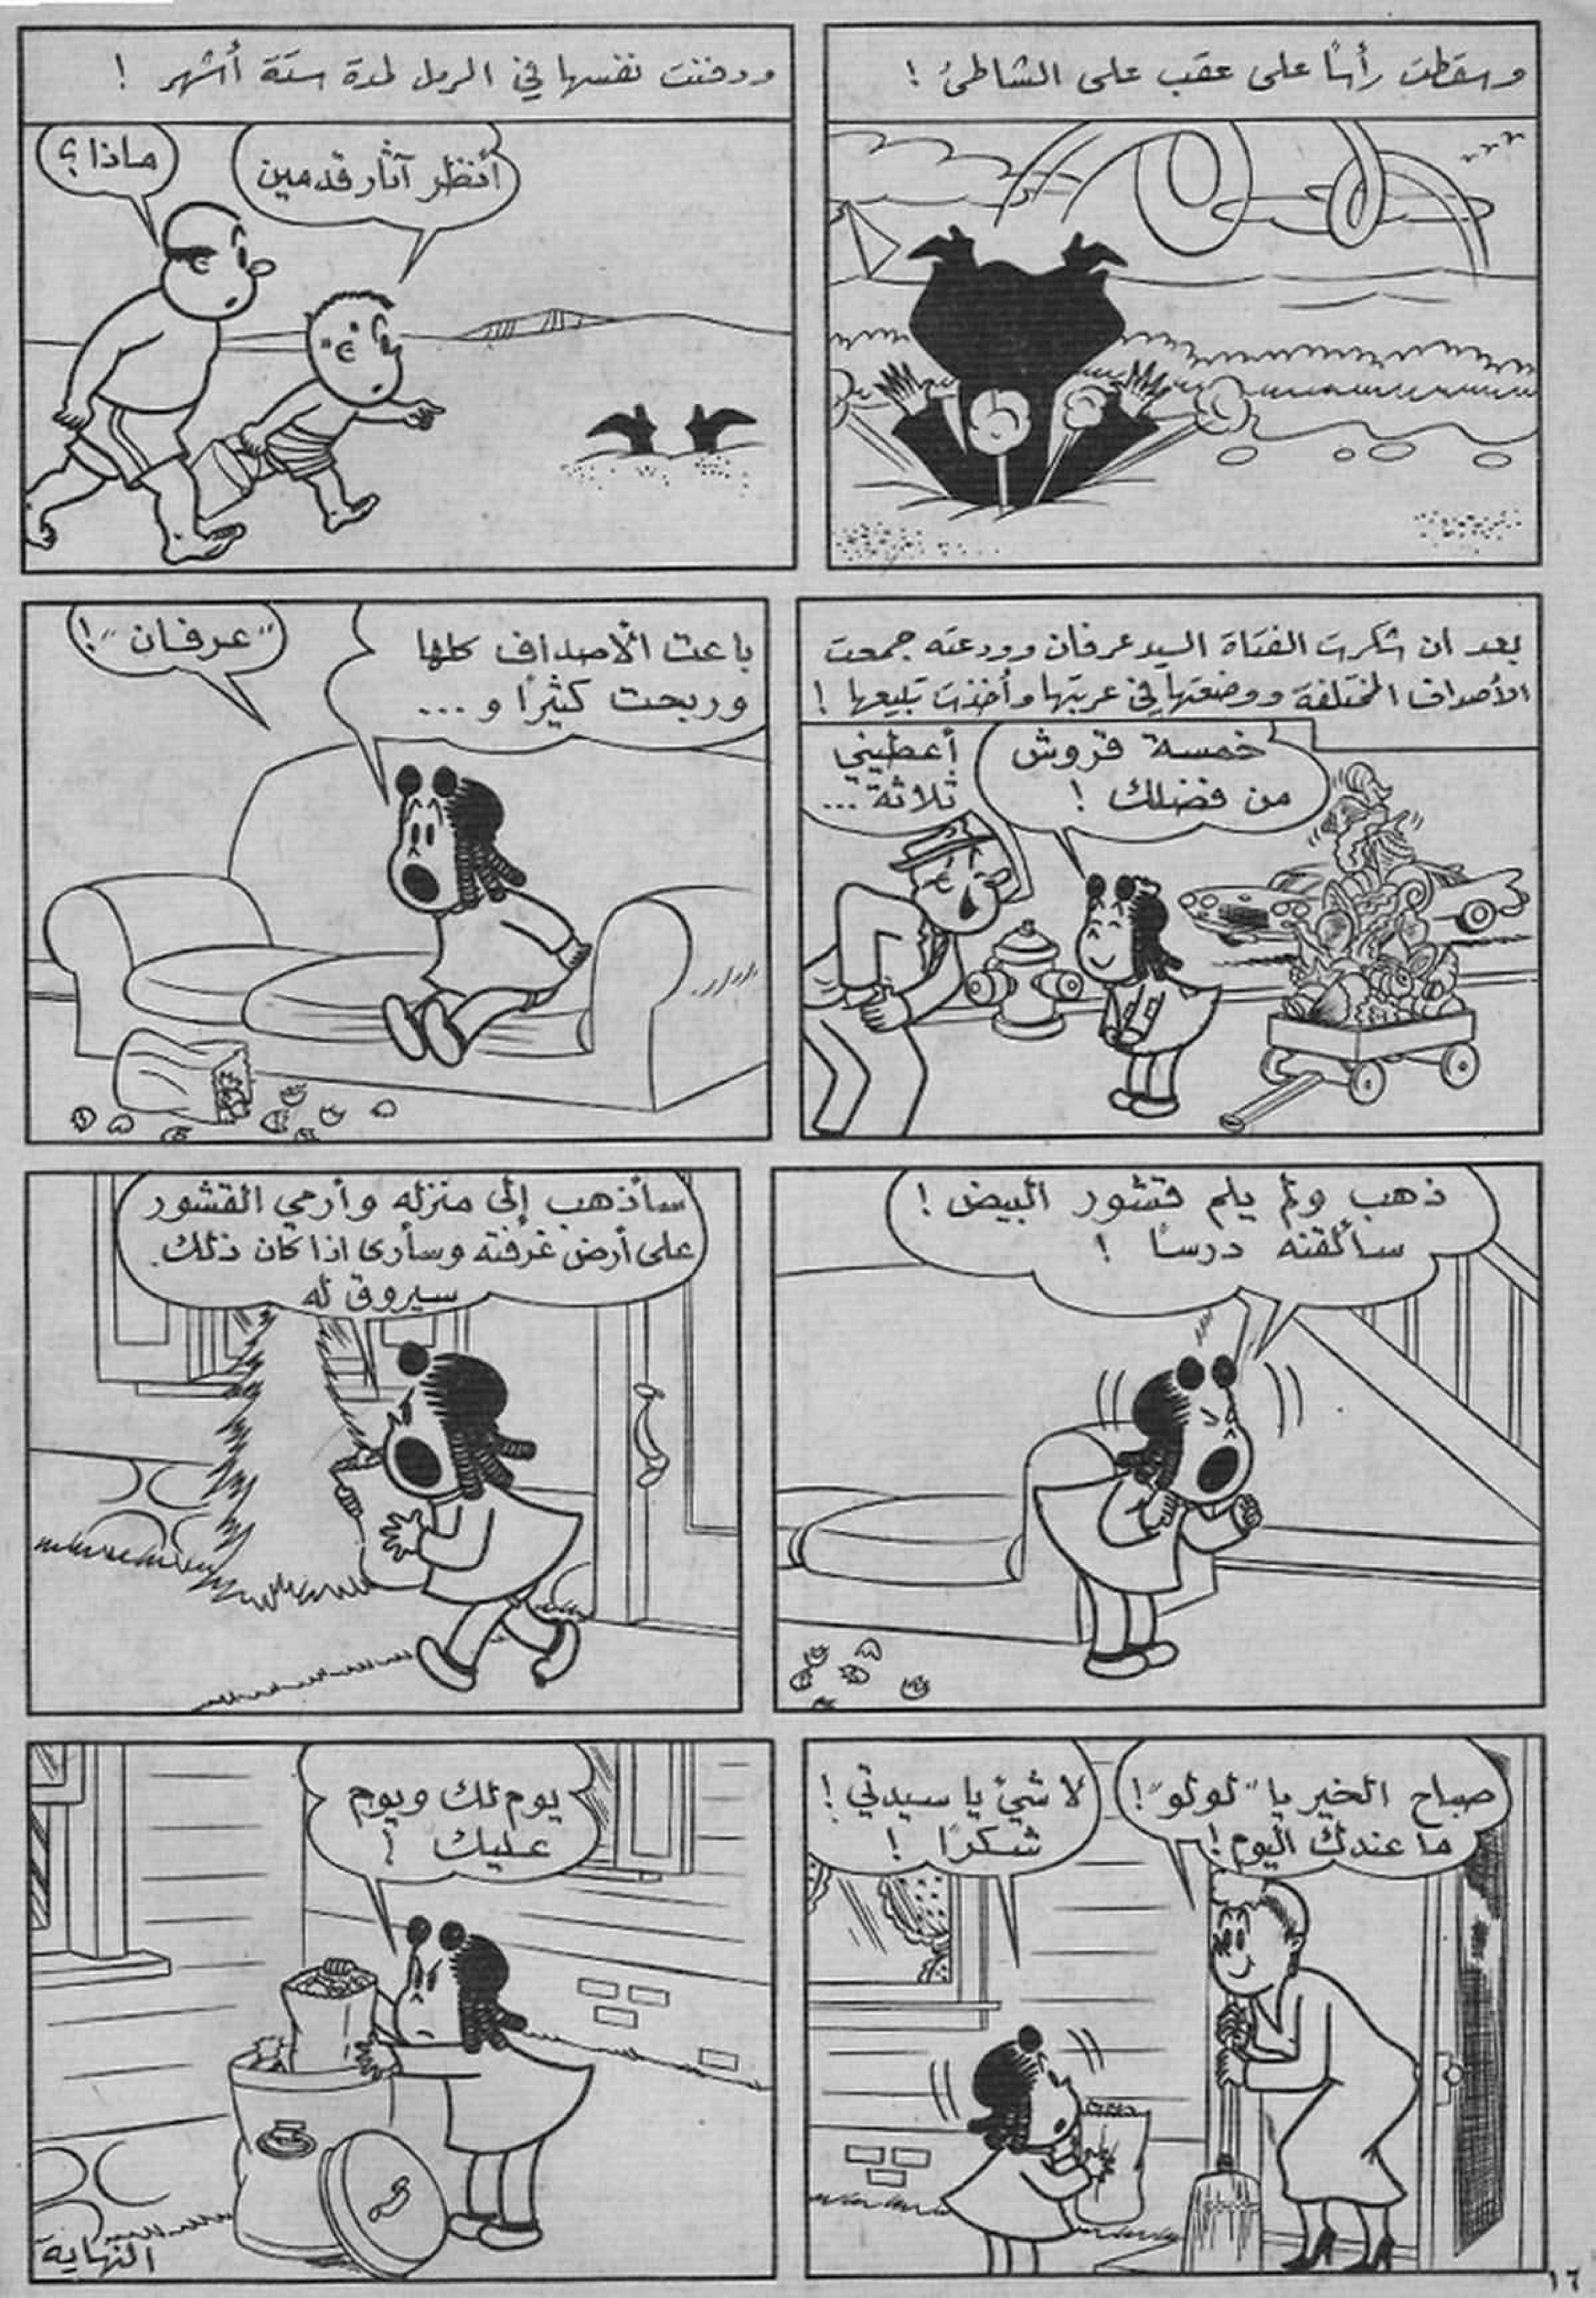 وسقطت رأسًا على عقب على الشاطئ !
ودفنت نفسها في الرمل لمدة ستة أشهر !
أنظر آثار قدمين
ماذا ؟
بعد ان شكرت الفتاة السيد عرفان وودعته جمعت
الأصداف المختلفة ووضعتها في عربتها وأخذت تبيعها !
خمسة قروش
من فضلك !
أعطيني
ثلاثة ...
باعت الأصداف كلها
وربحت كثيرًا و ...
"عرفان" !
ذهب ولم يلم قشور البيض !
سألقنه درسًا !
سأذهب إلى منزله وأرمي القشور
على أرض غرفته وسأرى اذا كان ذلك
سيروق له
صباح الخير يا "لولو" !
ما عندك اليوم !
لا شيئ يا سيدتي !
شكرًا !
يوم لك ويوم
عليك !
النهاية
١٦